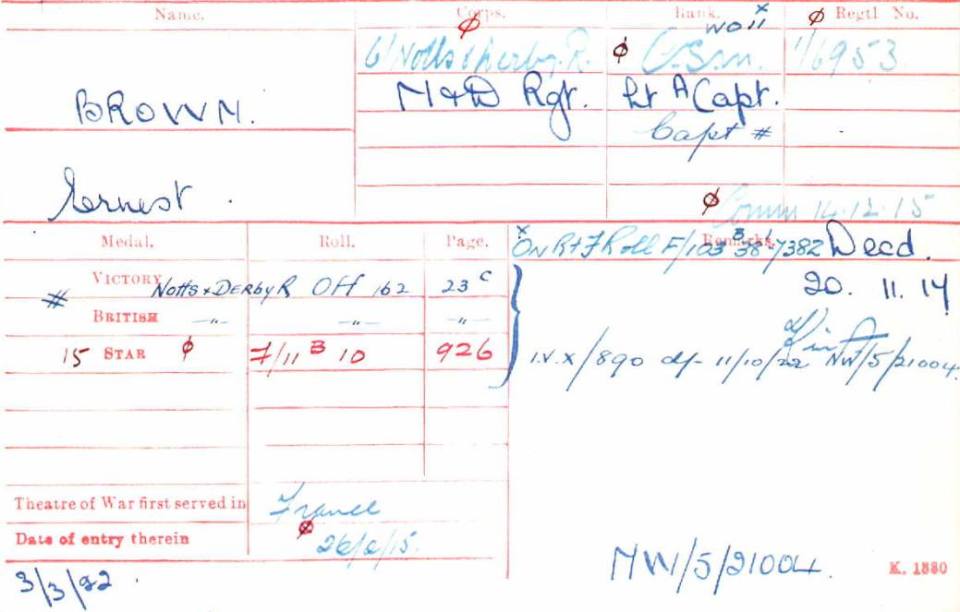 Name. Corps. Rank. ø Regtl No.
ø x
WO II
6/Notts & Derby. R. ø C.S.M. 1/6953
BROWN. N & D Rgt. Lt A Capt.
Capt #
Ernest.
ø Comm 14.12.15
Medal. Roll. Page. Remarks.
x On R & F Roll F/103 B 38 7382 Decd.
VICTORY Notts & Derby R Off 162 23 C 20. 11. 17
#
BRITISH -"- -"- -"-
15 STAR ø F/11 B 10 926
I.V. X/890 df- 11/10/22 NW/5/21004.
Theatre of War first served in France
Date of entry therein ø 26/6/15.
3/3/22. NW/5/21004. K. 1380